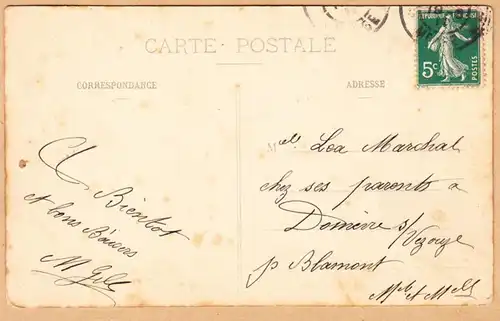 CARTE POSTALE
CORRESPONDANCE
ADRESSE
REPUBLIQUE FRANÇAISE
5c
POSTES
A Bientot
et bons Baisers
M
Melle Lea Marchal
chez ses parents a
Domèvre s/
Vezouze
p Blamont
Mthe et Melle